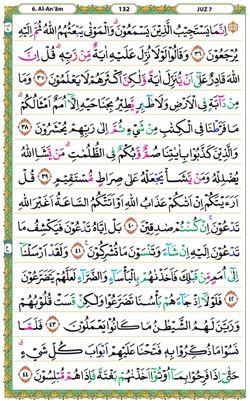 6. Al-An'ām 132 JUZ 7
إِنَّمَا يَسْتَجِيبُ الَّذِينَ يَسْمَعُونَ وَالْمَوْتَىٰ يَبْعَثُهُمُ اللَّهُ ثُمَّ إِلَيْهِ
يُرْجَعُونَ ٣٦ وَقَالُوا لَوْلَا نُزِّلَ عَلَيْهِ آيَةٌ مِّن رَّبِّهِ قُلْ إِنَّ
اللَّهَ قَادِرٌ عَلَىٰ أَن يُنَزِّلَ آيَةً وَلَٰكِنَّ أَكْثَرَهُمْ لَا يَعْلَمُونَ ٣٧ وَمَا
مِن دَابَّةٍ فِي الْأَرْضِ وَلَا طَائِرٍ يَطِيرُ بِجَنَاحَيْهِ إِلَّا أُمَمٌ أَمْثَالُكُم
مَّا فَرَّطْنَا فِي الْكِتَابِ مِن شَيْءٍ ثُمَّ إِلَىٰ رَبِّهِمْ يُحْشَرُونَ ٣٨
وَالَّذِينَ كَذَّبُوا بِآيَاتِنَا صُمٌّ وَبُكْمٌ فِي الظُّلُمَاتِ مَن يَشَإِ اللَّهُ
يُضْلِلْهُ وَمَن يَشَأْ يَجْعَلْهُ عَلَىٰ صِرَاطٍ مُّسْتَقِيمٍ ٣٩ قُلْ
أَرَأَيْتَكُمْ إِنْ أَتَاكُمْ عَذَابُ اللَّهِ أَوْ أَتَتْكُمُ السَّاعَةُ أَغَيْرَ اللَّهِ
تَدْعُونَ إِن كُنتُمْ صَادِقِينَ ٤٠ بَلْ إِيَّاهُ تَدْعُونَ فَيَكْشِفُ مَا
تَدْعُونَ إِلَيْهِ إِن شَاءَ وَتَنسَوْنَ مَا تُشْرِكُونَ ٤١ وَلَقَدْ أَرْسَلْنَا
إِلَىٰ أُمَمٍ مِّن قَبْلِكَ فَأَخَذْنَاهُم بِالْبَأْسَاءِ وَالضَّرَّاءِ لَعَلَّهُمْ يَتَضَرَّعُونَ
٤٢ فَلَوْلَا إِذْ جَاءَهُم بَأْسُنَا تَضَرَّعُوا وَلَٰكِن قَسَتْ قُلُوبُهُمْ
وَزَيَّنَ لَهُمُ الشَّيْطَانُ مَا كَانُوا يَعْمَلُونَ ٤٣ فَلَمَّا
نَسُوا مَا ذُكِّرُوا بِهِ فَتَحْنَا عَلَيْهِمْ أَبْوَابَ كُلِّ شَيْءٍ
حَتَّىٰ إِذَا فَرِحُوا بِمَا أُوتُوا أَخَذْنَاهُم بَغْتَةً فَإِذَا هُم مُّبْلِسُونَ ٤٤